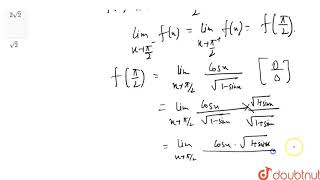 2√2
√2
2
lim x→π/2⁻ f(x) = lim x→π/2⁺ f(x) = f(π/2).
f(π/2) = lim x→π/2 cosx/√(1-sinx) [0/0]
= lim x→π/2 cosx/√(1-sinx) × √(1+sinx)/√(1+sinx)
= lim x→π/2 cosx · √(1+sinx)
doubtnut